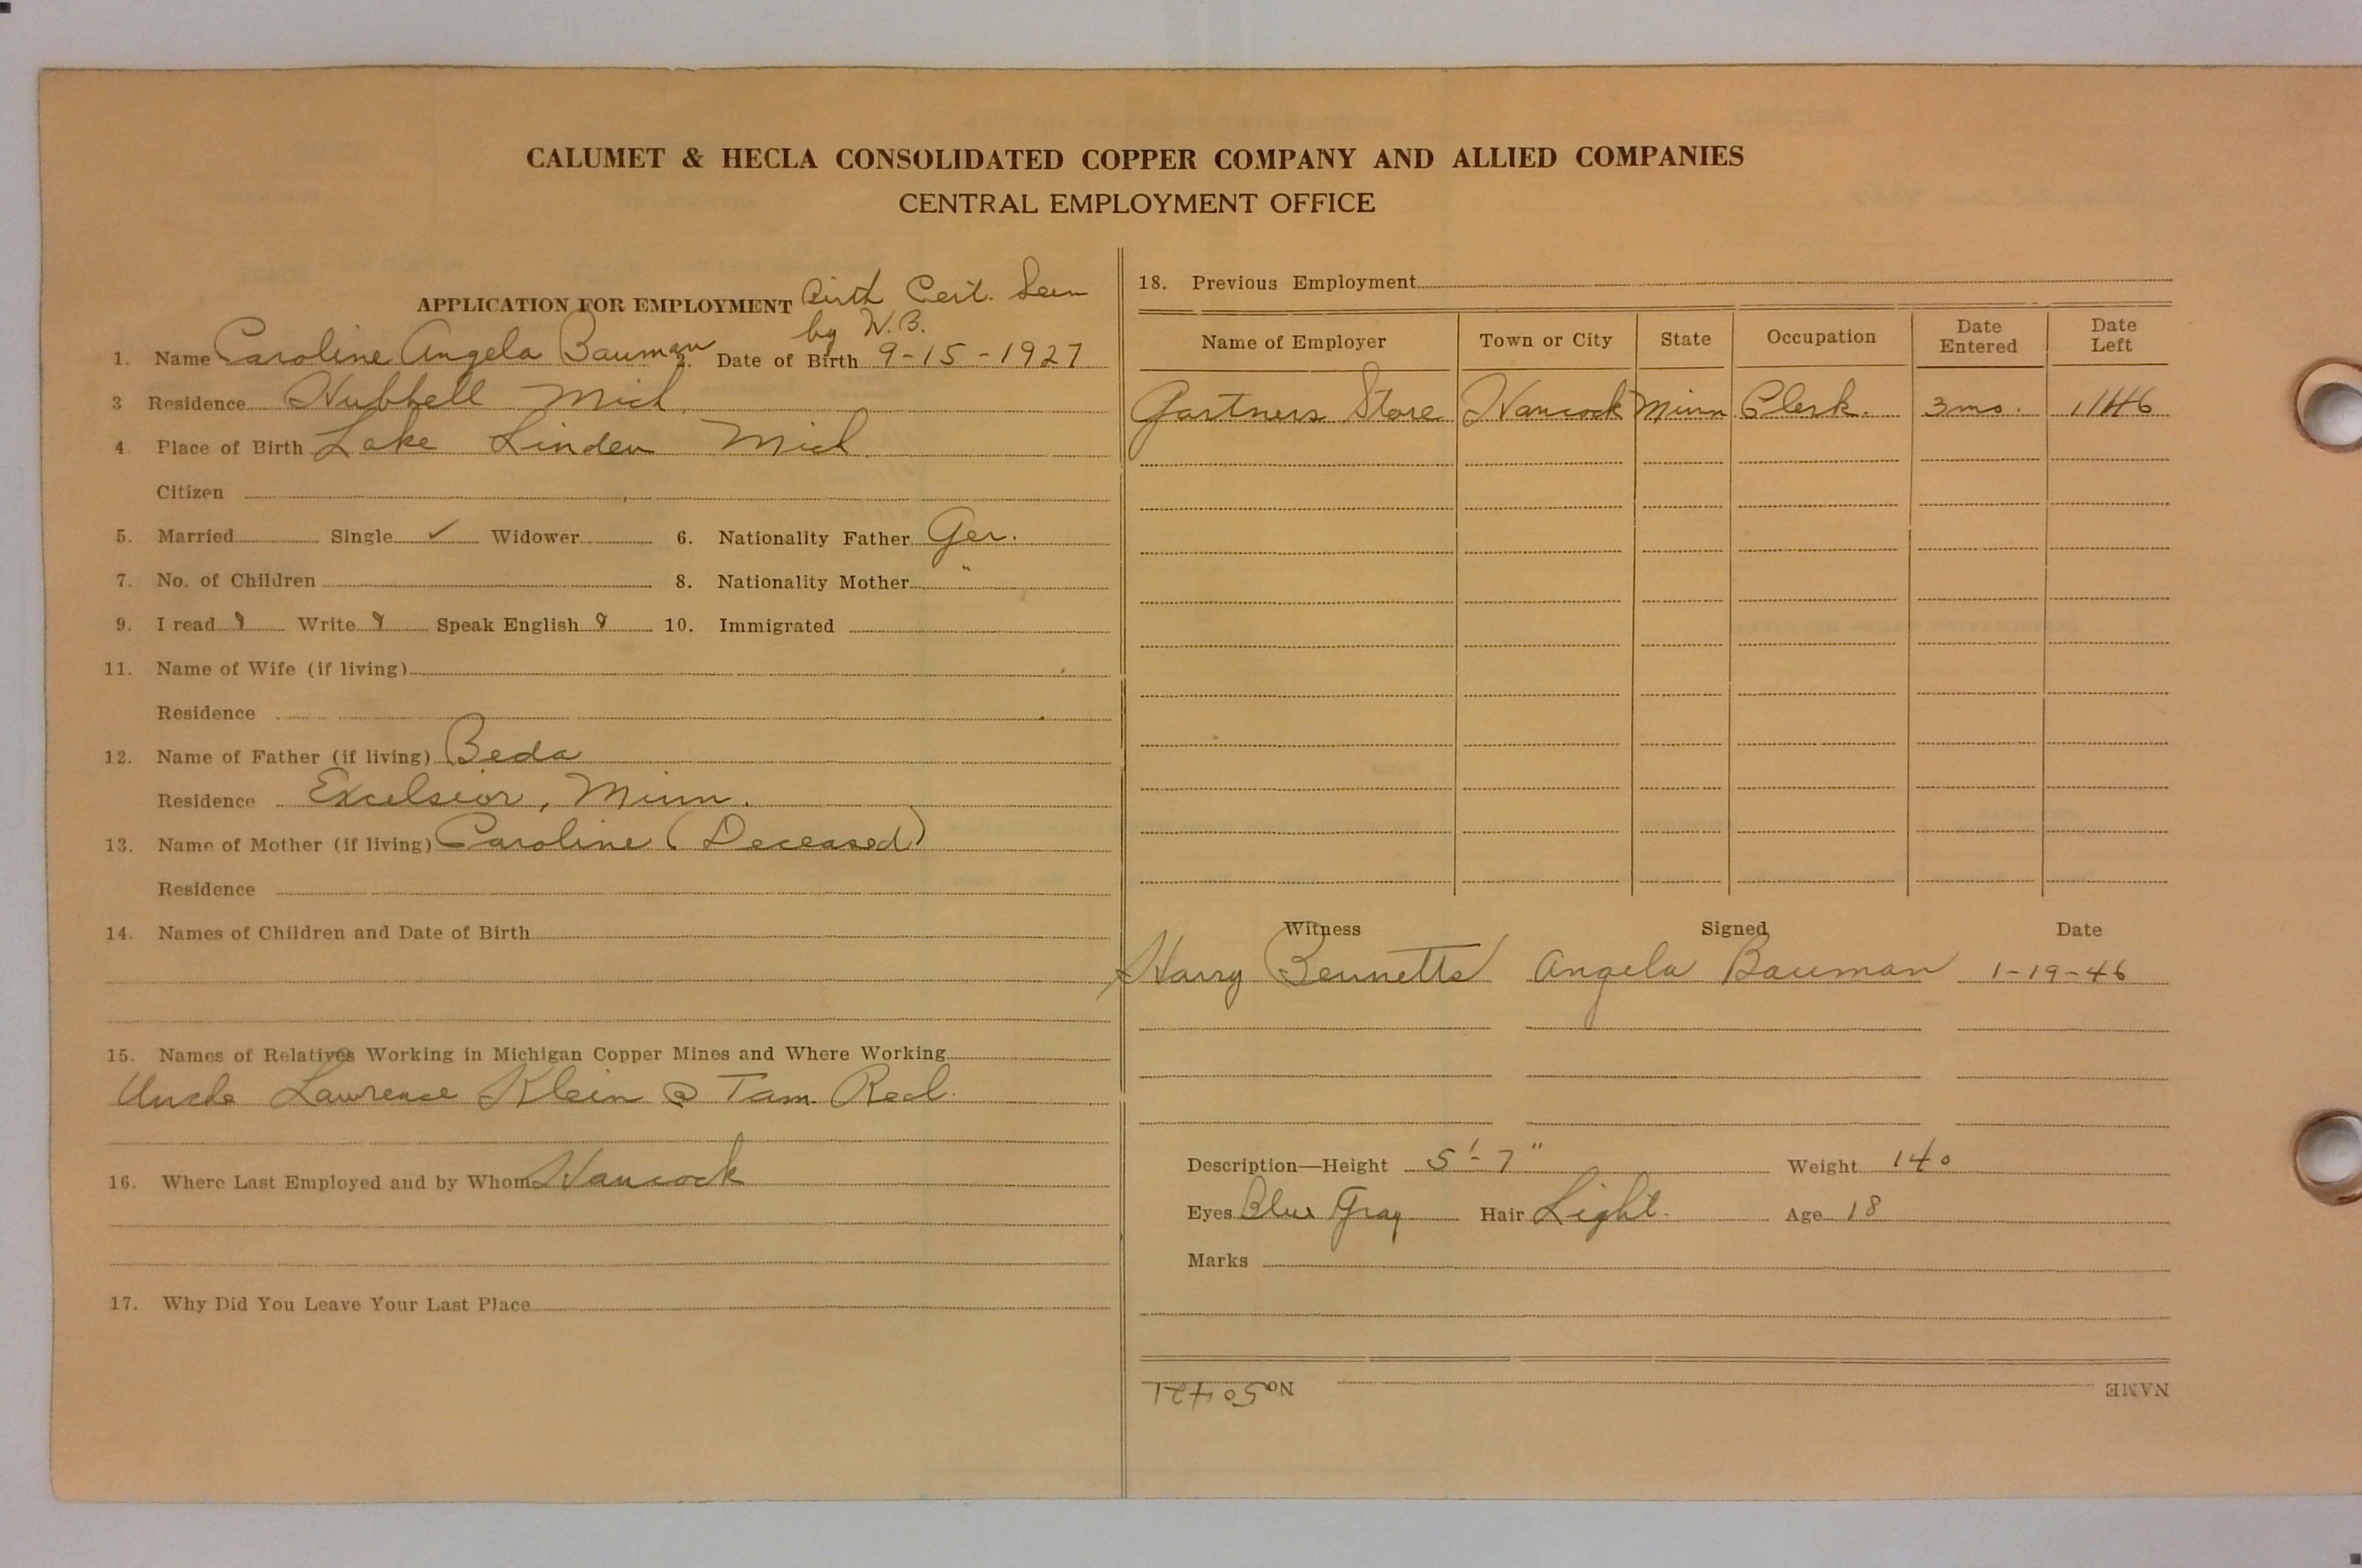 CALUMET & HECLA CONSOLIDATED COPPER COMPANY AND ALLIED COMPANIES
CENTRAL EMPLOYMENT OFFICE
APPLICATION FOR EMPLOYMENT Birth Cert. Seen
by H.B.
1. Name Caroline Angela Bauman 2. Date of Birth 9-15-1927
3 Residence Hubbell Mich.
4. Place of Birth Lake Linden Mich.
Citizen
5. Married Single ✓ Widower 6. Nationality Father Ger.
7. No. of Children 8. Nationality Mother "
9. I read Write Speak English 10. Immigrated
11. Name of Wife (if living)
Residence
12. Name of Father (if living) Beda
Residence Excelsior, Minn.
13. Name of Mother (if living) Caroline (Deceased)
Residence
14. Names of Children and Date of Birth
15. Names of Relatives Working in Michigan Copper Mines and Where Working
Uncle Lawrence Klein @ Tam. Recl.
16. Where Last Employed and by Whom Hancock
17. Why Did You Leave Your Last Place
18. Previous Employment
Name of Employer Town or City State Occupation Date Entered Date Left
Gartners Store Hancock Minn. Clerk. 3 mo. 1/1/46
Witness Signed Date
Harry Bennetts Angela Bauman 1-19-46
Description—Height 5'-7" Weight 140
Eyes Blue Gray Hair Light. Age 18
Marks
NAME No. 50421